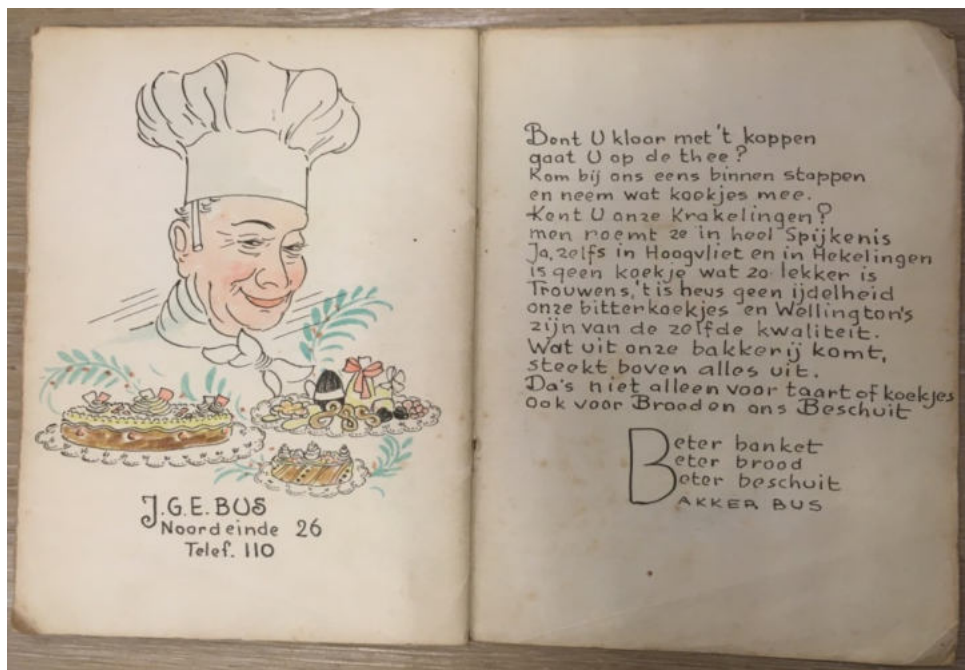 J.G.E. BUS
Noordeinde 26
Telef. 110
Bent U klaar met 't kappen
gaat U op de thee?
Kom bij ons eens binnen stappen
en neem wat koekjes mee.
Kent U onze Krakelingen?
men roemt ze in heel Spijkenis
Ja, zelfs in Hoogvliet en in Hekelingen
is geen koekje wat zo lekker is
Trouwens, 't is heus geen ijdelheid
onze bitterkoekjes en Wellington's
zijn van de zelfde kwaliteit.
Wat uit onze bakkerij komt,
steekt boven alles uit.
Da's niet alleen voor taart of koekjes
ook voor Brood en ons Beschuit
Beter banket
eter brood
eter beschuit
AKKER BUS